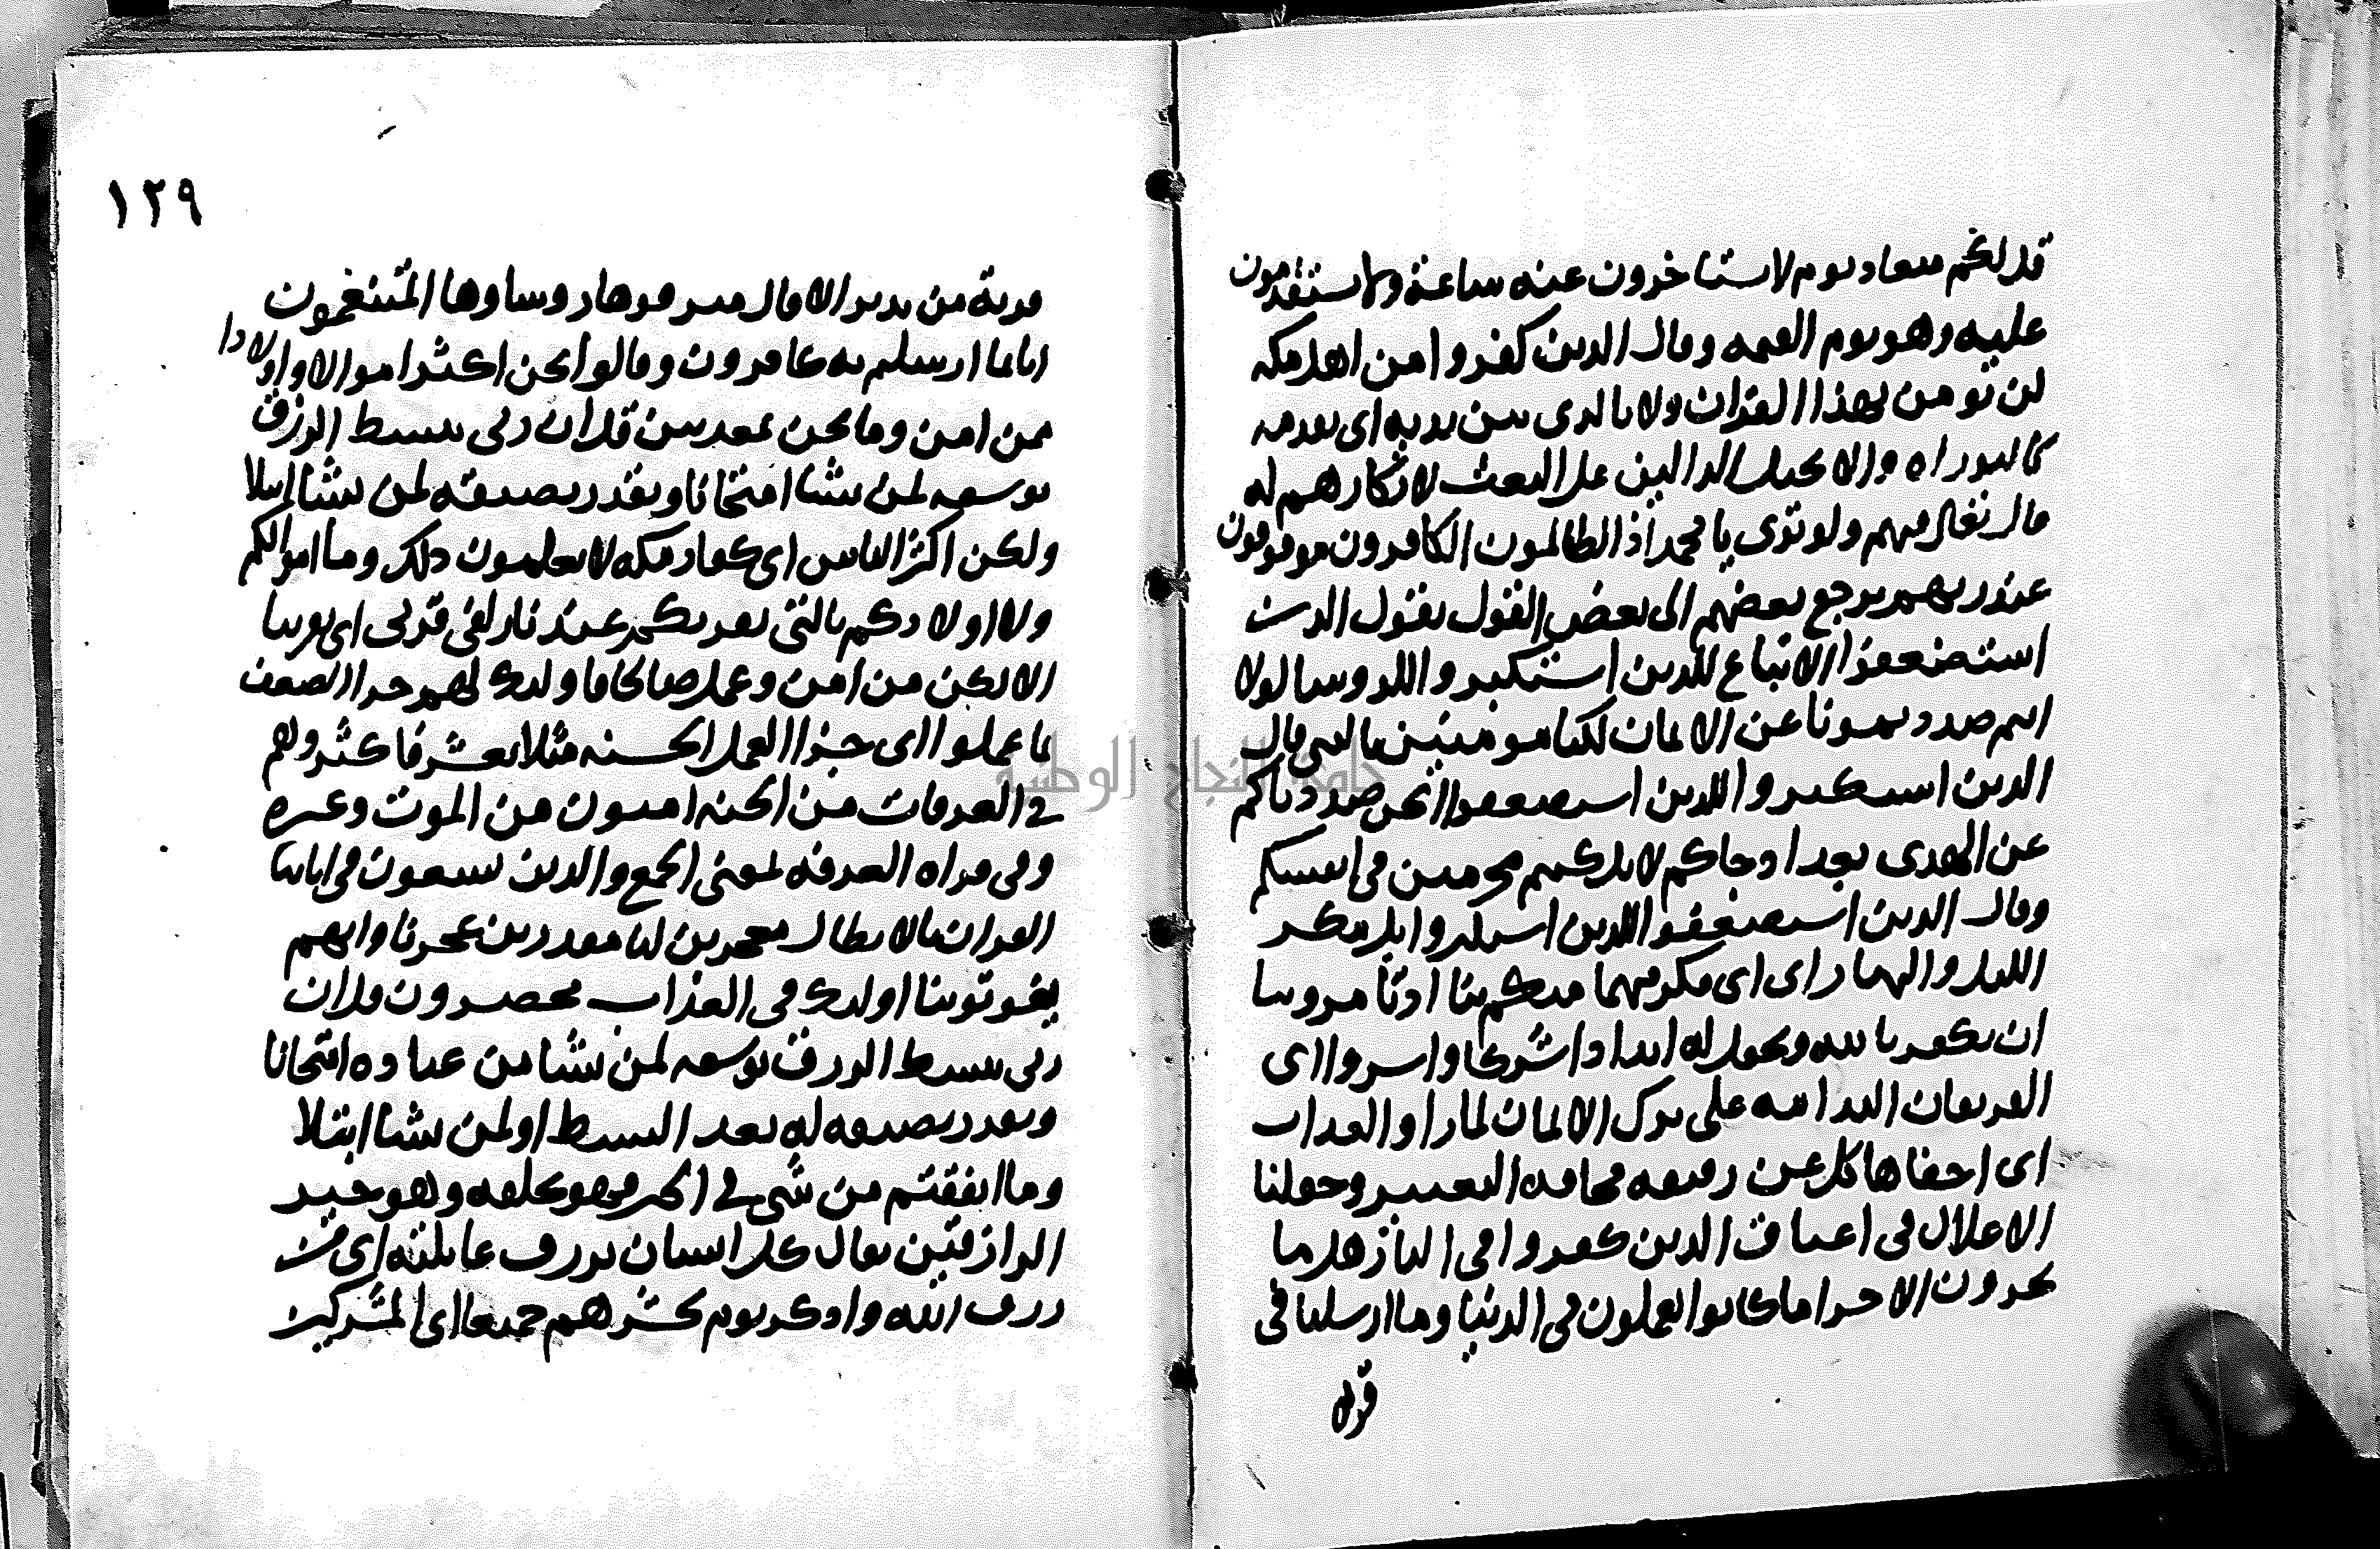 قل لكم ميعاد يوم لا تستاخرون عنه ساعة ولا تستقدمون
عليه وهو يوم القيمه وقال الذين كفروا من اهل مكه
لن نومن بهذا القران ولا بالذي بين يديه اي تقدمه
كالتوراه والانجيل الدالين على البعث لانكارهم له
قال تعالى فيهم ولو ترى يا محمد اذ الظالمون الكافرون موقوفون
عند ربهم يرجع بعضهم الى بعض القول يقول الذين
استضعفوا الاتباع للذين استكبروا الروسا لولا
انتم صددتمونا عن الايمان لكنا مومنين بالنبي قال
الذين استكبروا للذين استضعفوا انحن صددناكم
عن الهدى بعد اذ جاكم لا بل كنتم مجرمين في انفسكم
وقال الذين استضعفوا للذين استكبروا بل مكر
الليل والنهار اي اي مكر فيهما منكم بنا اذ تامروننا
ان نكفر بالله ونجعل له اندادا شركا واسروا اي
الفريقان الندامه على ترك الايمان لما راوا العذاب
اي اخفاها كل عن رفيقه مخافه التعيير وجعلنا
الاغلال في اعناق الذين كفروا في النار هل ما
يجزون الا جزا ما كانوا يعملون في الدنيا وما ارسلنا في
قريه
١٢٩
قرية من نذير الا قال مترفوها روساوها المتنعمون
انا بما ارسلتم به كافرون وقالوا نحن اكثر اموالا واولادا
ممن امن وما نحن بمعذبين قل ان ربي يبسط الرزق
يوسعه لمن يشا امتحانا ويقدر يضيقه لمن يشا ابتلا
ولكن اكثر الناس اي كفار مكه لا يعلمون ذلك وما اموالكم
ولا اولادكم بالتي تقربكم عندنا زلفى قربى اي تقريبا
الا لكن من امن وعمل صالحا فاولئك لهم جزا الضعف
بما عملوا اي جزا العمل الحسنه مثلا بعشر فاكثر وهم
في الغرفات من الجنه امنون من الموت وغيره
وفي قراه الغرفه بمعنى الجمع والذين يسعون في اياتنا
القران بالابطال معجزين لنا مقدرين عجزنا وانهم
يفوتوننا اولئك في العذاب محضرون قل ان
ربي يبسط الرزق يوسعه لمن يشا من عباده امتحانا
ويقدر يضيقه له بعد البسط او لمن يشا ابتلا
وما انفقتم من شي في الخير فهو يخلفه وهو خير
الرازقين يقال كل انسان يرزق عايلته اي من
رزق الله واذكر يوم نحشرهم جميعا اي المشركين
جامعة النجاح الوطنية